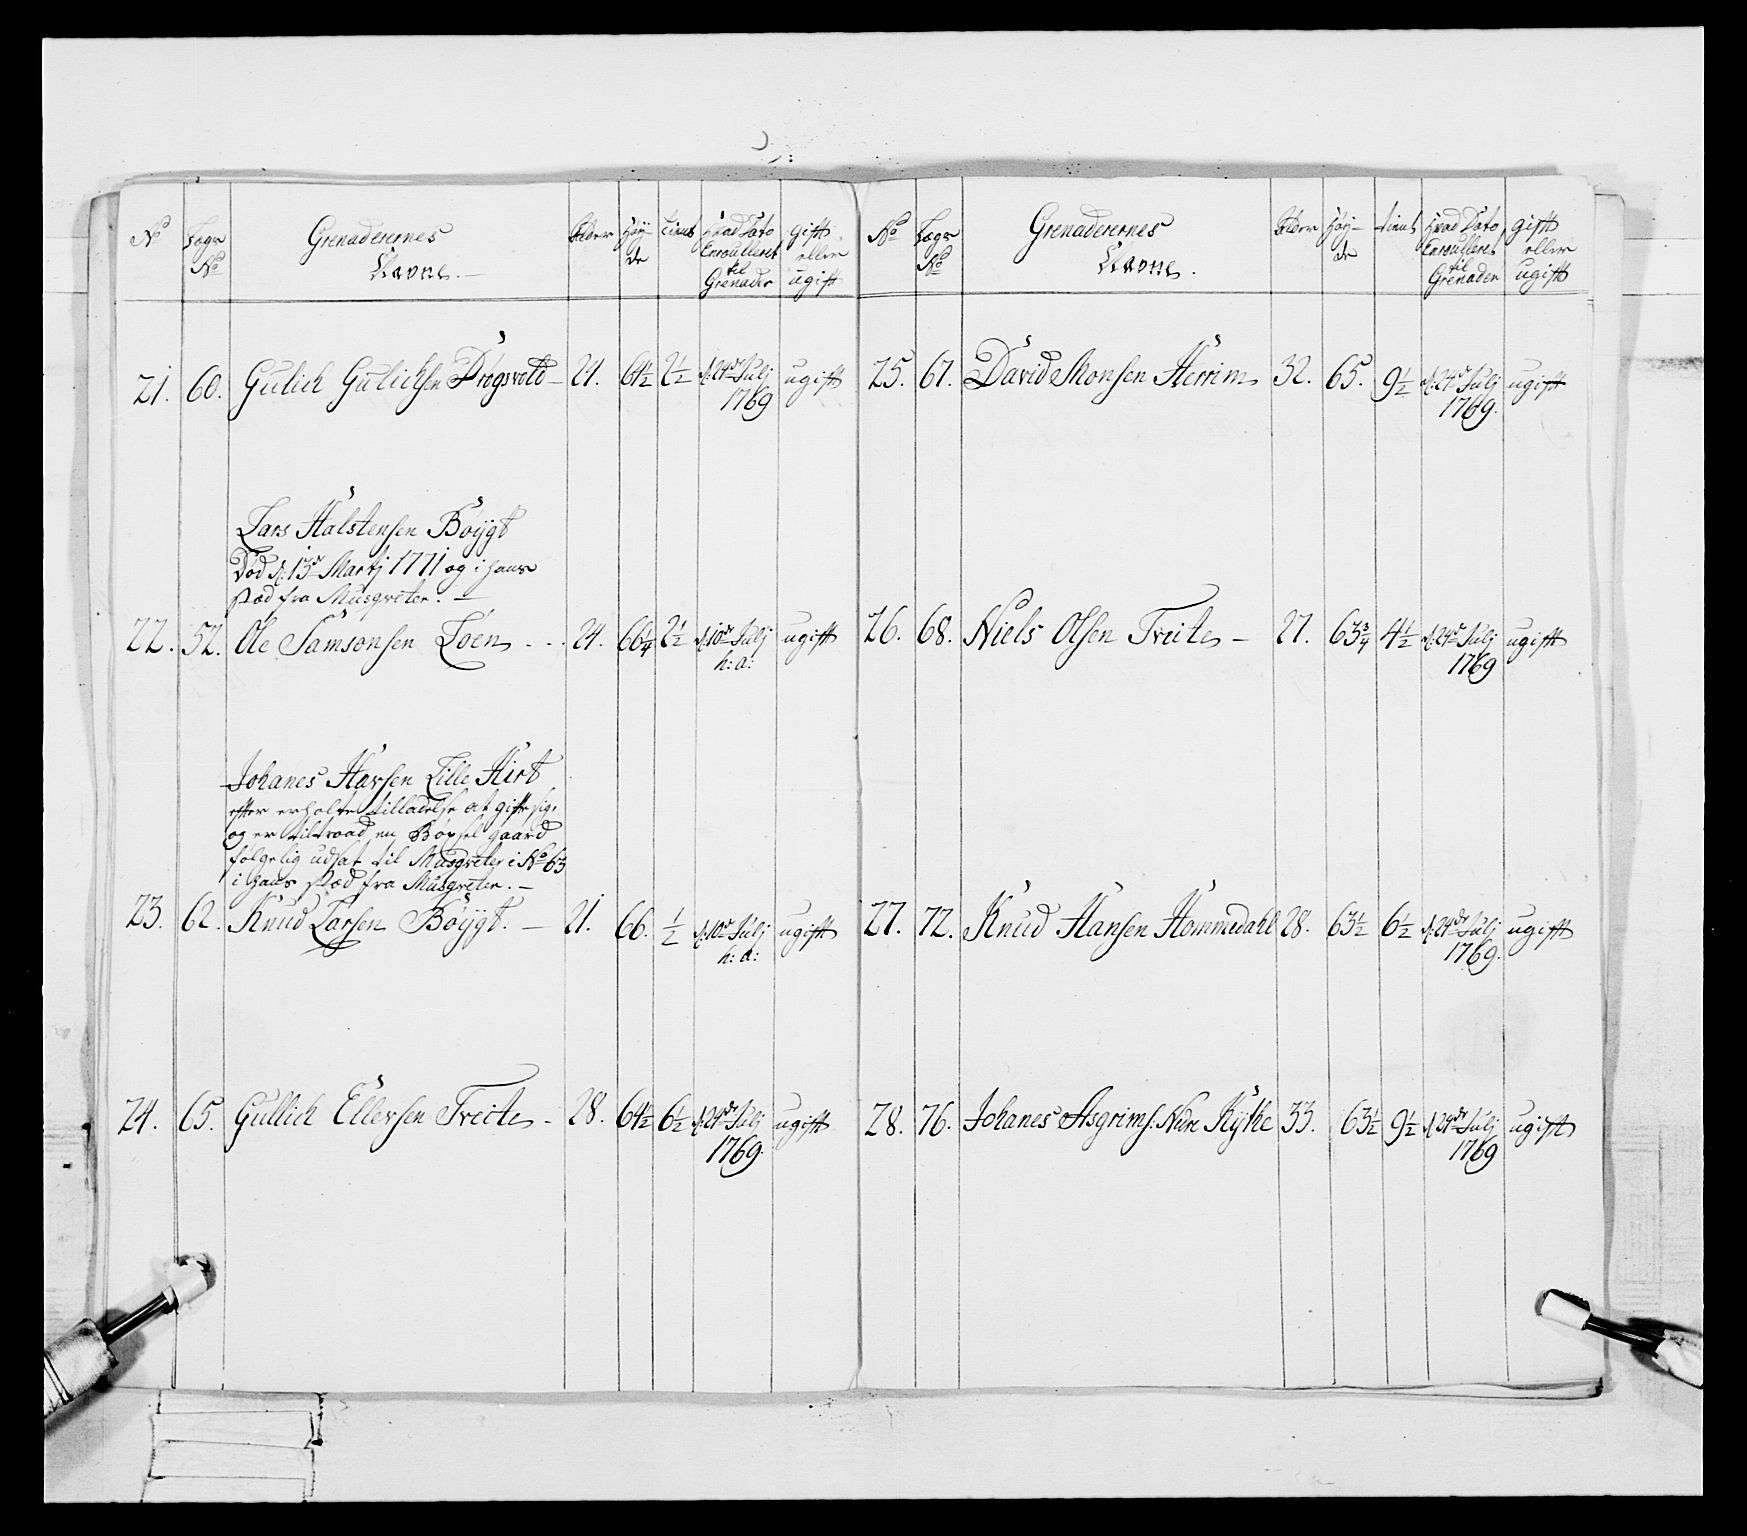 No Lægs No Grenaderernes Navne. Alder Høyde tient Hvad Dato Enroulleret til Grenader gift eller ugift
21. 60. Gulich Gulichsen Drogsvold 24. 64½ 2½ d: 24de Julj 1769 ugift
Lars Halstensen Bøygt
Død d: 13de Martj 1771 og i hans
stæd fra Musqveter.
22. 52. Ole Samsonsen Loen 24. 66¼ 2½ d: 10de Julj h: a: ugift
Johanes Hansen Lille Hirt
efter erholte tilladelse at gifte sig,
og er tiltraad en Bøxsel gaard
følgelig udsat til Musqveter i No 63
i hans stæd fra Musqveter.
23. 62. Knud Larsen Bøygt. 21. 66. ½ d: 10de Julj h: a: ugift
24. 65. Gullich Ellevsen Treite 28. 64½ 6½ d: 24de Julj 1769. ugift
No Lægs No Grenaderernes Navne. Alder Høyde tient Hvad Dato Enroulleret til Grenader gift eller ugift
25. 67. David Monsen Herrim 32. 65. 9½ d: 24de Julj 1769. ugift
26. 68. Niels Olsen Treite 27. 63¾ 4½ d: 24de Julj 1769 ugift
27. 72. Knud Hansen Hommedahl 28. 63½ 6½ d: 24de Julj 1769. ugift
28. 76. Johanes Asgrims: Ndre Rÿke 33. 63½ 9½ d: 24de Julj 1769 ugift